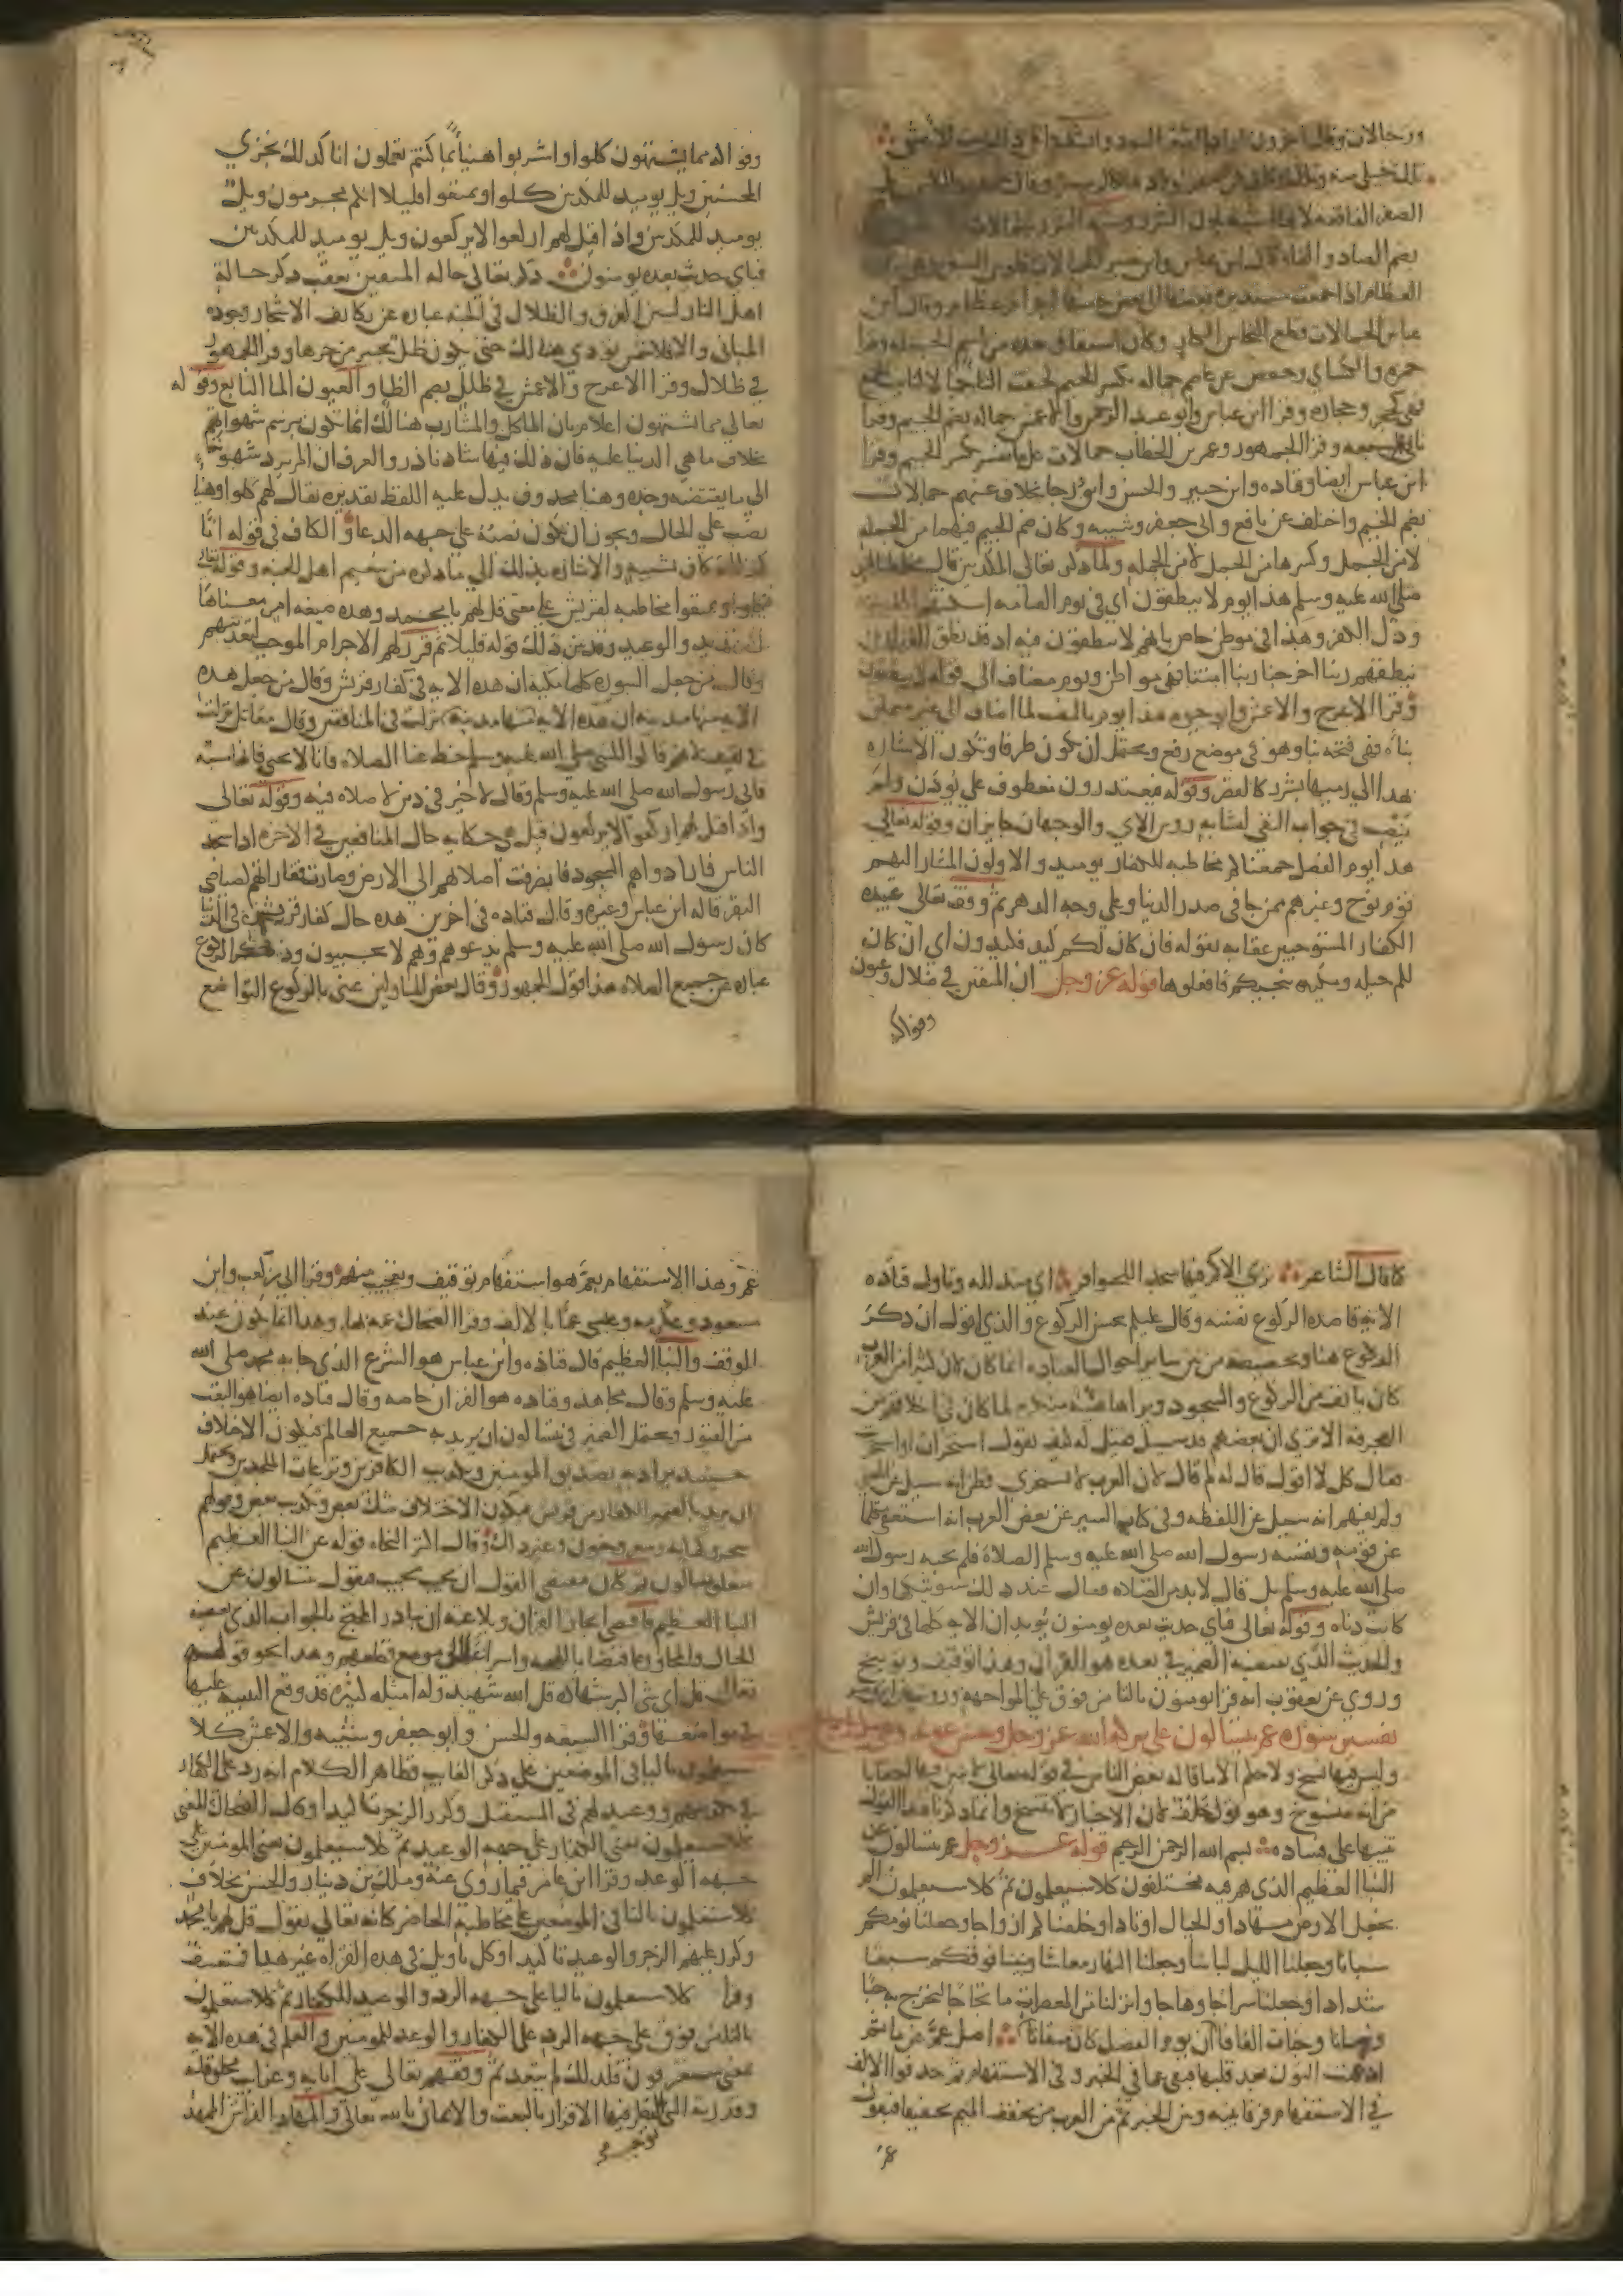 ورجالات وقال اخرون اراد
الصفر الفاقعة لانها اشبه بلون الشرر وشبه الشرر بالجمالات
بضم الصاد والفاء قال ابن عباس وابن جبير الجمالات قلوس السفن وهي
العظام اذا جمعت مستديرة بعضها الى بعض جاء منها اجرام عظام وقال ابن
عباس الجمالات قطع النحاس الكبار وكان اشتقاق هذه من اسم الجملة وقرا
حمزة والكسائي وحفص عن عاصم جمالة بكسر الجيم لحقت التا جمالا لتانيث الجمع
فهي كحجر وحجارة وقرا ابن عباس وابو عبد الرحمن والاعمش جمالة بضم الجيم وقرا
باقي السبعة وقرا الجمهور وعمر بن الخطاب جمالات على ما تفسر بكسر الجيم وقرا
ابن عباس ايضا وقتاده وابن جبير والحسن وابو رجا بخلاف عنهم جمالات
بضم الجيم واختلف عن نافع وابي جعفر وشيبه وكان ضم الجيم فيهما من الجملة
لا من الجمل وكسرها من الجمل لا من الجملة ولما ذكر تعالى المكذبين قال مخاطبا
صلى الله عليه وسلم هذا يوم لا ينطقون اي في يوم القيامه
ودل الكفر وهذا في موطن خاص بانهم لا ينطقون فيه اذ قد نطق القران
بنطقهم ربنا اخرجنا ربنا امتنا فهي مواطن ويوم مضاف الى قوله لا ينطقون
وقرا الاعرج والاعمش وابو حيوة هذا يوم بالنصب لما اضاف الى غير متمكن
بناه فهي فتحه بنا وهو في موضع رفع ويحتمل ان يكون ظرفا وتكون الاشاره
بهذا الى رميها بشرر كالقصر وقوله فيعتذرون معطوف على يوذن ولم
ينصب في جواب النفي لتشابه روس الاي والوجهان جايزان وقوله تعالى
هذا يوم الفصل جمعناكم مخاطبه للكفار يوميذ والاولون المشار اليهم
قوم نوح وغيرهم ممن جا في صدر الدنيا وعلى وجه الدهر ثم وقف تعالى عبيده
الكفار المستوجبين عقابه بقوله فان كان لكم كيد فكيدون اي ان كان
لكم حيله ومكيده تنجيكم فافعلوها قوله عز وجل ان المتقين في ظلال وعيون
وفواكه
وفواكه مما يشتهون كلوا واشربوا هنيا بما كنتم تعملون انا كذلك نجزي
المحسنين ويل يوميذ للمكذبين كلوا وتمتعوا قليلا انكم مجرمون ويل
يوميذ للمكذبين واذا قيل لهم اركعوا لا يركعون ويل يوميذ للمكذبين
فباي حديث بعده يومنون ذكر تعالى حاله المتقين بعقب ذكر حالة
اهل النار ليبين الفرق والظلال في الجنه عباره عن تكاثف الاشجار وجوده
المباني والا فلا شمس توذي هنالك حتى يكون ظل يجير من حرها وقرا الجمهور
في ظلال وقرا الاعرج والاعمش في ظلل بضم الظا والعيون الما النابع وقوله
تعالى مما يشتهون اعلام بان الماكل والمشارب هنالك انما تكون برسم شهواتهم
بخلاف ما هي الدنيا عليه فان ذلك فيها شاذ نادر والعرف ان المرء يرد شهوته
الى ما يقتضيه وجده وهنا محذوف يدل عليه اللفظ تقديره يقال لهم كلوا وهنيا
نصب على الحال ويجوز ان يكون نصبه على جهه الدعا والكاف في قوله انا
كذلك كاف تشبيه والاشاره بذلك الى ما ذكره من تنعيم اهل الجنه وقوله تعالى
كلوا وتمتعوا مخاطبه لقريش على معنى قل لهم يا محمد وهذه صيغه امر معناها
التهديد والوعيد وقد بين ذلك قوله قليلا ثم قرر لهم الاجرام الموجب لتعذيبهم
وقال من جعل السوره كلها مكيه ان هذه الايه في كفار قريش وقال من جعل هذه
الايه منها مدنيه ان هذه الايه نزلت في المنافقين وقال مقاتل نزلت
في ثقيف لانهم قالوا للنبي صلى الله عليه وسلم حط عنا الصلاه فانا لا نحني فانها سبة
فابى رسول الله صلى الله عليه وسلم وقال لا خير في دين لا صلاه فيه وقوله تعالى
واذا قيل لهم اركعوا لا يركعون قيل هي حكايه حال المنافقين في الاخره اذا سجد
الناس فارادوا هم السجود فانصرفت اصلابهم الى الارض وصارت فقاراتهم كصياصي
البقر قاله ابن عباس وغيره وقال قتاده في اخرين هذه حال كفار قريش في الدنيا
كان رسول الله صلى الله عليه وسلم يدعوهم وهم لا يجيبون وذكر الركوع
عباره عن جميع الصلاه هذا قول الجمهور وقال بعض المتاولين عنى بالركوع التواضع
كما قال الشاعر ترى الاكم فيها سجدا للحوافر اي متذلله وتاول قتاده
الايه قاصده الركوع نفسه وقال عليكم بحسن الركوع والذي اقول ان ذكر
الركوع هنا وتخصيصه من بين ساير احوال العباده انما كان لان كثيرا من العرب
كان يانف من الركوع والسجود ويراها هيئة منكره لما كان في اخلاقهم من
العجرفه الا ترى ان بعضهم قد سيل فقيل له كيف تقول استخذات او استخذيت
فقال كل لا اقول قال له لم قال لان العرب لا تستخذي فظن انه سيل عن المعنى
ولم يفهم انه سيل عن اللفظه وفي كتاب السير عن بعض العرب انه استعفى متكلما
عن قومه ونفسه رسول الله صلى الله عليه وسلم الصلاة فلم يجبه رسول الله
صلى الله عليه وسلم بل قال لا بد من الصلاه فقال عند ذلك سنوتيكها وان
كانت دناه وقوله تعالى فباي حديث بعده يومنون يويد ان الايه كلها في قريش
والحديث الذي يقتضيه الضمير في بعده هو القران وهذا توقيف وتوبيخ
وروي عن يعقوب انه قرا تومنون بالتا من فوق على المواجهه ورويت عن ابن عامر
تفسير سورة عم يتسالون على بركة الله عز وجل وحسن عونه
وليس فيها نسخ ولا حكم الا ما قاله بعض الناس في قوله تعالى لابثين فيها احقابا
من انه منسوخ وهو قول خلف لان الاخبار لا تنسخ وانما ذكرنا هذا القول
تنبيها على فساده بسم الله الرحمن الرحيم قوله عز وجل عم يتسالون عن
النبا العظيم الذي هم فيه مختلفون كلا سيعلمون ثم كلا سيعلمون الم
نجعل الارض مهادا والجبال اوتادا وخلقناكم ازواجا وجعلنا نومكم
سباتا وجعلنا الليل لباسا وجعلنا النهار معاشا وبنينا فوقكم سبعا
شدادا وجعلنا سراجا وهاجا وانزلنا من المعصرات ما ثجاجا لنخرج به حبا
ونباتا وجنات الفافا ان يوم الفصل كان ميقاتا اصل عم عن ما ثم
ادغمت النون بعد قلبها فبقي عما في الخبر وفي الاستفهام ثم حذفوا الالف
في الاستفهام فرقا بينه وبين الخبر ثم من العرب من يخفف الميم تخفيفا فيقول
عم
عم وهذا الاستفهام بعم هو استفهام توقيف وتعجب منهم وقرا ابي بن كعب وابن
مسعود وعكرمه وعيسى عما بالالف وقرا الضحاك عمه بها وهذا انما يكون عند
الوقف والنبا العظيم قال قتاده وابن عباس هو الشرع الذي جا به محمد صلى الله
عليه وسلم وقال مجاهد وقتاده هو القران خاصه وقال قتاده ايضا هو البعث
من القبور ويحتمل الضمير في يتسالون ان يريد به جميع العالم فيكون الاختلاف
حينيذ يراد به تصديق المومنين وتكذيب الكافرين ونزغات الملحدين ويحتمل
ان يريد بالضمير الكفار من قريش فيكون الاختلاف شك بعض وتكذيب بعض وقولهم
سحر وكهانه وشعر وجنون وغير ذلك وقال اكثر النحاه قوله عن النبا العظيم
متعلق بيتسالون كان مقتضى القول ان يجيب مجيب فيقول يتسالون عن
النبا العظيم فاقتضى ايجاز القران وبلاغته ان يبادر المحتج بالجواب الذي يقتضيه
الحال والمجاوره اقتضابا للحجه واسراعا الى موضع قطعهم وهذا نحو قوله
تعالى قل اي شي اكبر شهاده قل الله شهيد وله امثله كثيره قد وقع التنبيه عليها
في مواضعها وقرا السبعه والحسن وابو جعفر وشيبه والاعمش كلا
سيعلمون باليا في الموضعين على ذكر الغايب فظاهر الكلام انه رد على الكفار
في تكذيبهم ووعيد لهم في المستقبل وكرر الزجر تاكيدا وقال الضحاك المعنى
كلا سيعلمون يعني الكفار على جهه الوعيد ثم كلا سيعلمون يعني المومنين على
جهه الوعد وقرا ابن عامر فيما روي عنه ومالك بن دينار والحسن بخلاف
كلا ستعلمون بالتا في الموضعين على مخاطبة الحاضر كانه تعالى يقول قل لهم يا محمد
وكرر عليهم الزجر والوعيد تاكيدا وكل تاويل في هذه القراه غير هذا فمتعسف
وقرا كلا سيعلمون باليا على جهه الرد والوعيد للكفار ثم كلا ستعلمون
بالتا من فوق على جهه الرد على الكفار والوعد للمومنين والعلم في هذه الايه
بمعنى ستعرفون فلذلك لم يتعد ثم وقفهم تعالى على اياته وغرايب مخلوقاته
وقدرته التي النظر فيها الاقرار بالبعث والايمان بالله تعالى والمهاد الفراش الممهد